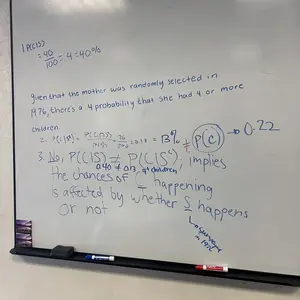 1. P(C|S)
= 40/100 = .4 = 40%
given that the mother was randomly selected in
1976, there's a 4 probability that she had 4 or more
children
2. P(C|S^c) = = 0.13 = 13% ≠ P(C) → 0.22
3. No, P(C|S) ≠ P(C|S^c), implies
the chances of C happening
4+ children
is affected by whether S happens
or not